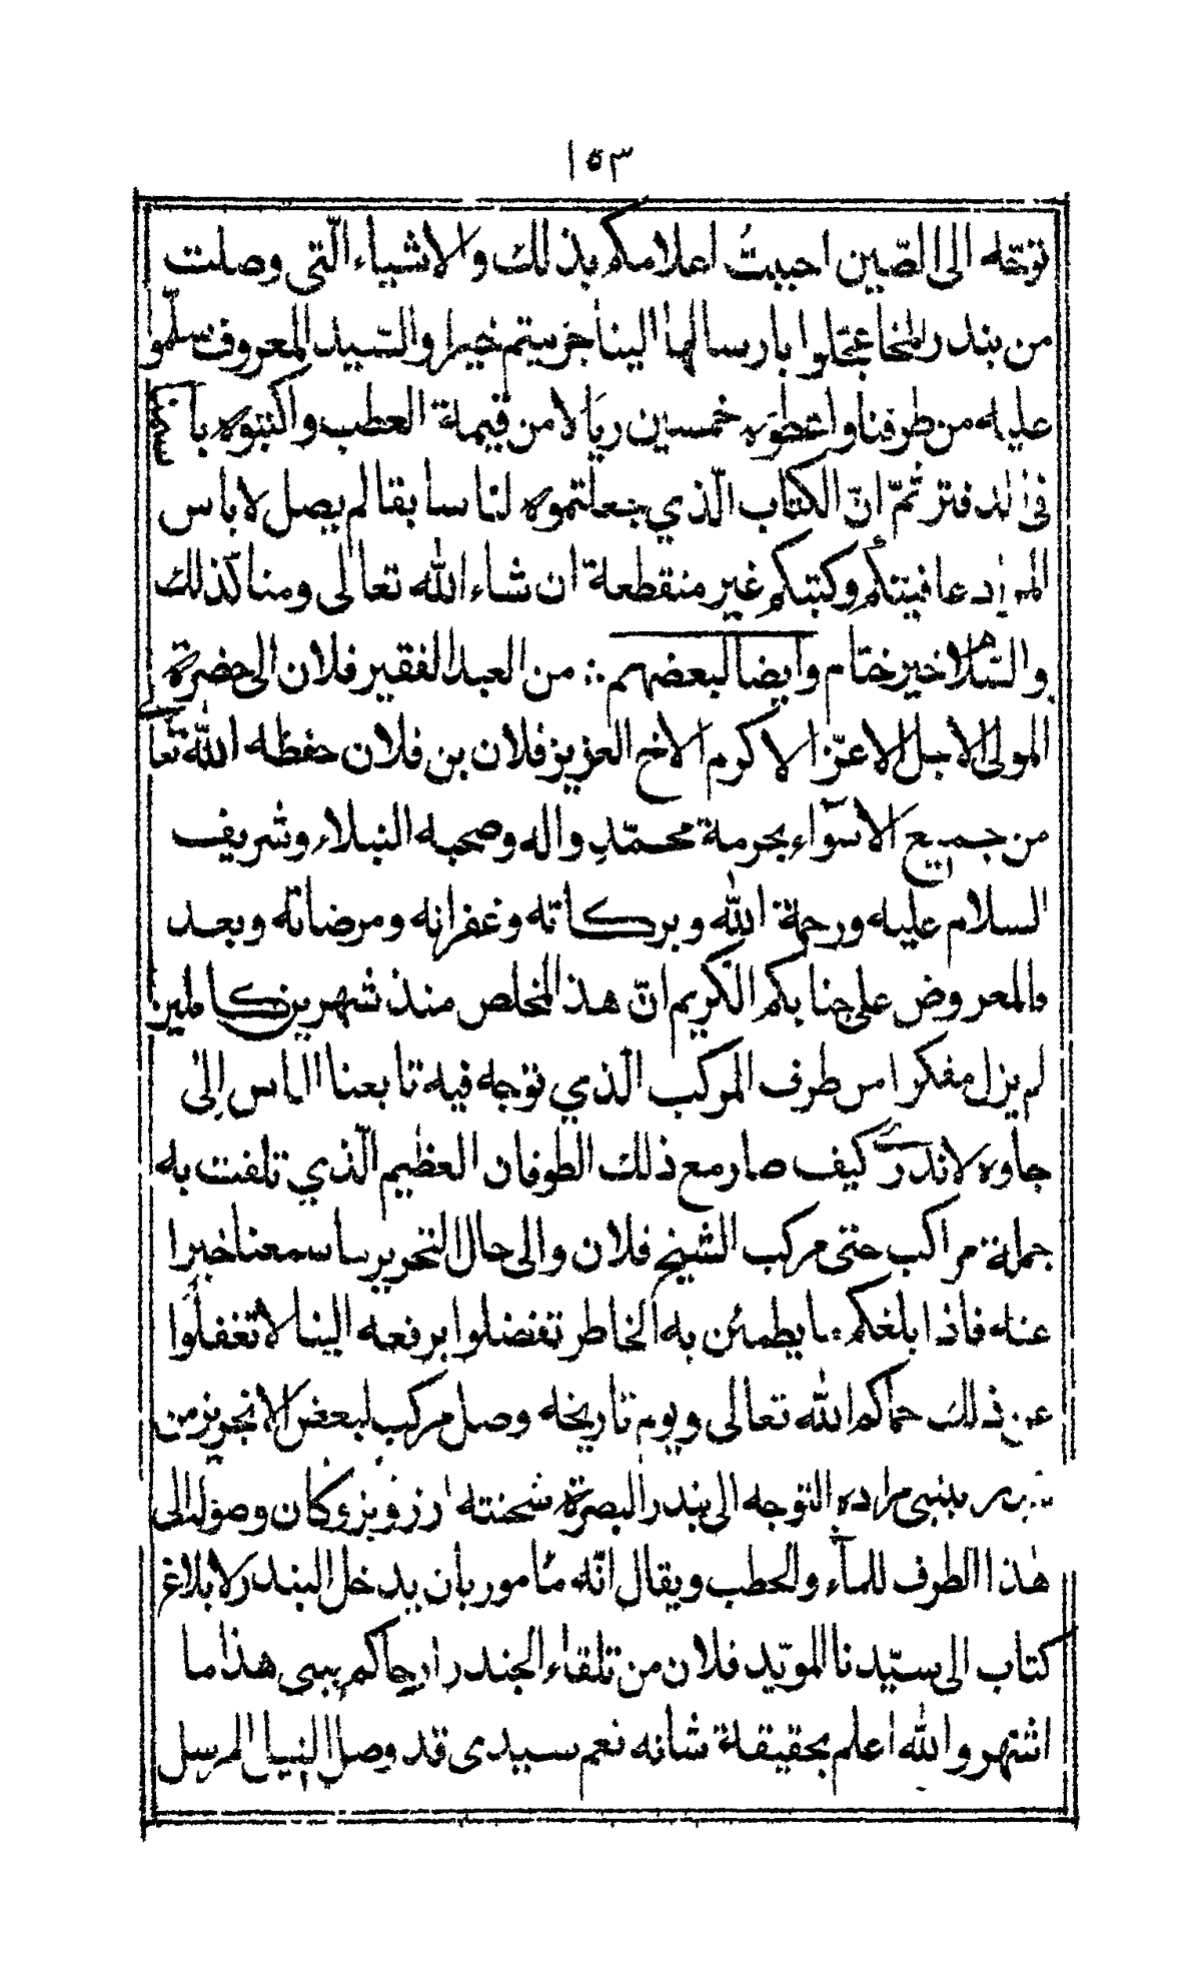 ١٥٣
توجّه الى الصّين احببتُ اعلامكم بذلك والاشياء الّتي وصلت
من بندر المخا عجّلوا بارسالها الينا جزيتم خيرا والسّيد المعروف سلّموا
عليه من طرفنا واعطوه خمسين ريالا من قيمة العطب واكتبوه باسمكم
في الدفتر ثمّ انّ الكتاب الّذي جعلتموه لنا سابقا لم يصل لاباس
المراد عافيتكم وكتبكم غير منقطعة ان شاء الله تعالى ومنا كذلك
والسّلام خير ختام وايضا لبعضهم ∴ من العبد الفقير فلان الى حضرة
المولى الاجل الاعزّ الاكرم الاخ العزيز فلان بن فلان حفظه الله تعالى
من جميع الاسوآء بحرمة محمّدٍ واله وصحبه النبلاء وشريف
السلام عليه ورحمة الله وبركاته وغفرانه ومرضاته وبعد
فالمعروض على جنابكم الكريم انّ هذ المخلص منذ شهرين كاملين
لم يزل مفكرا من طرف المركب الّذي توجه فيه تابعنا الماس إلى
جاوه لاندرى كيف صار مع ذلك الطوفان العظيم الّذي تلفت به
جملة مراكب حتى مركب الشيخ فلان والى حال التحرير ما سمعنا خبرا
عنه فاذا بلغكم ما يطمئن به الخاطر تفضلوا برفعه الينا لا تغفلُوا
عن ذلك حماكم الله تعالى ويوم تاريخه وصل مركب لبعض الانجريز من
بندر بمبئي مراده التوجه الى بندر البصرة شحنته ارز وبز وكان وصوله الى
هٰذا الطرف للمآء والحطب ويقال انّه مأمور بان يدخل البندر لابلاغ
كتاب الى سيّدنا المويّد فلان من تلقاء الجندر ارحاكم بمبى هذا ما
اشتهر والله اعلم بحقيقة شانه نعم سيدى قد وصل النيل المرسل